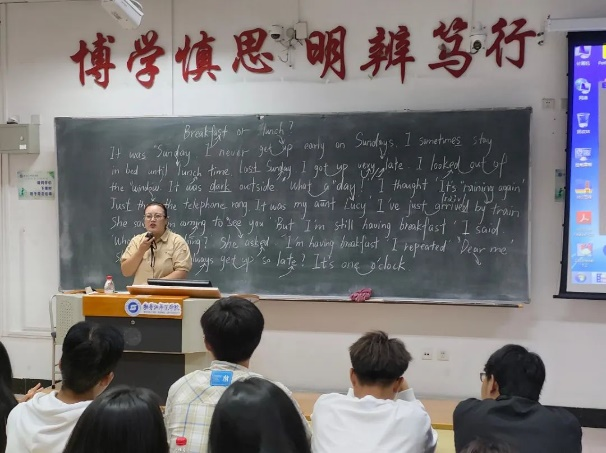 博学慎思明辨笃行
Breakfast or lunch?
It was Sunday. I never get up early on Sundays. I sometimes stay
in bed until lunch time. Last Sunday I got up very late. I looked out of
the window. It was dark outside. 'What a day!' I thought. 'It's raining again'
Just then the telephone rang. It was my aunt Lucy. 'I've just arrived by train
She said. I'm coming to see you' 'But I'm still having breakfast' I said.
doing? She asked 'I'm having breakfast' I repeated 'Dear me'
always get up so late? It's one o'clock